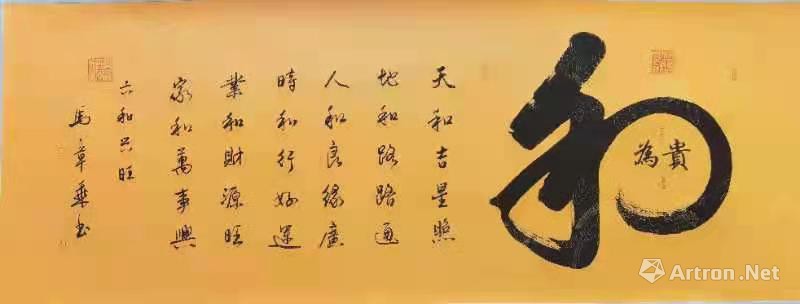 和
為貴
天和吉星照
地和路路通
人和良緣廣
時和行好運
業和財源旺
家和萬事興
六和兴旺
馬章乘书
Artron.Net